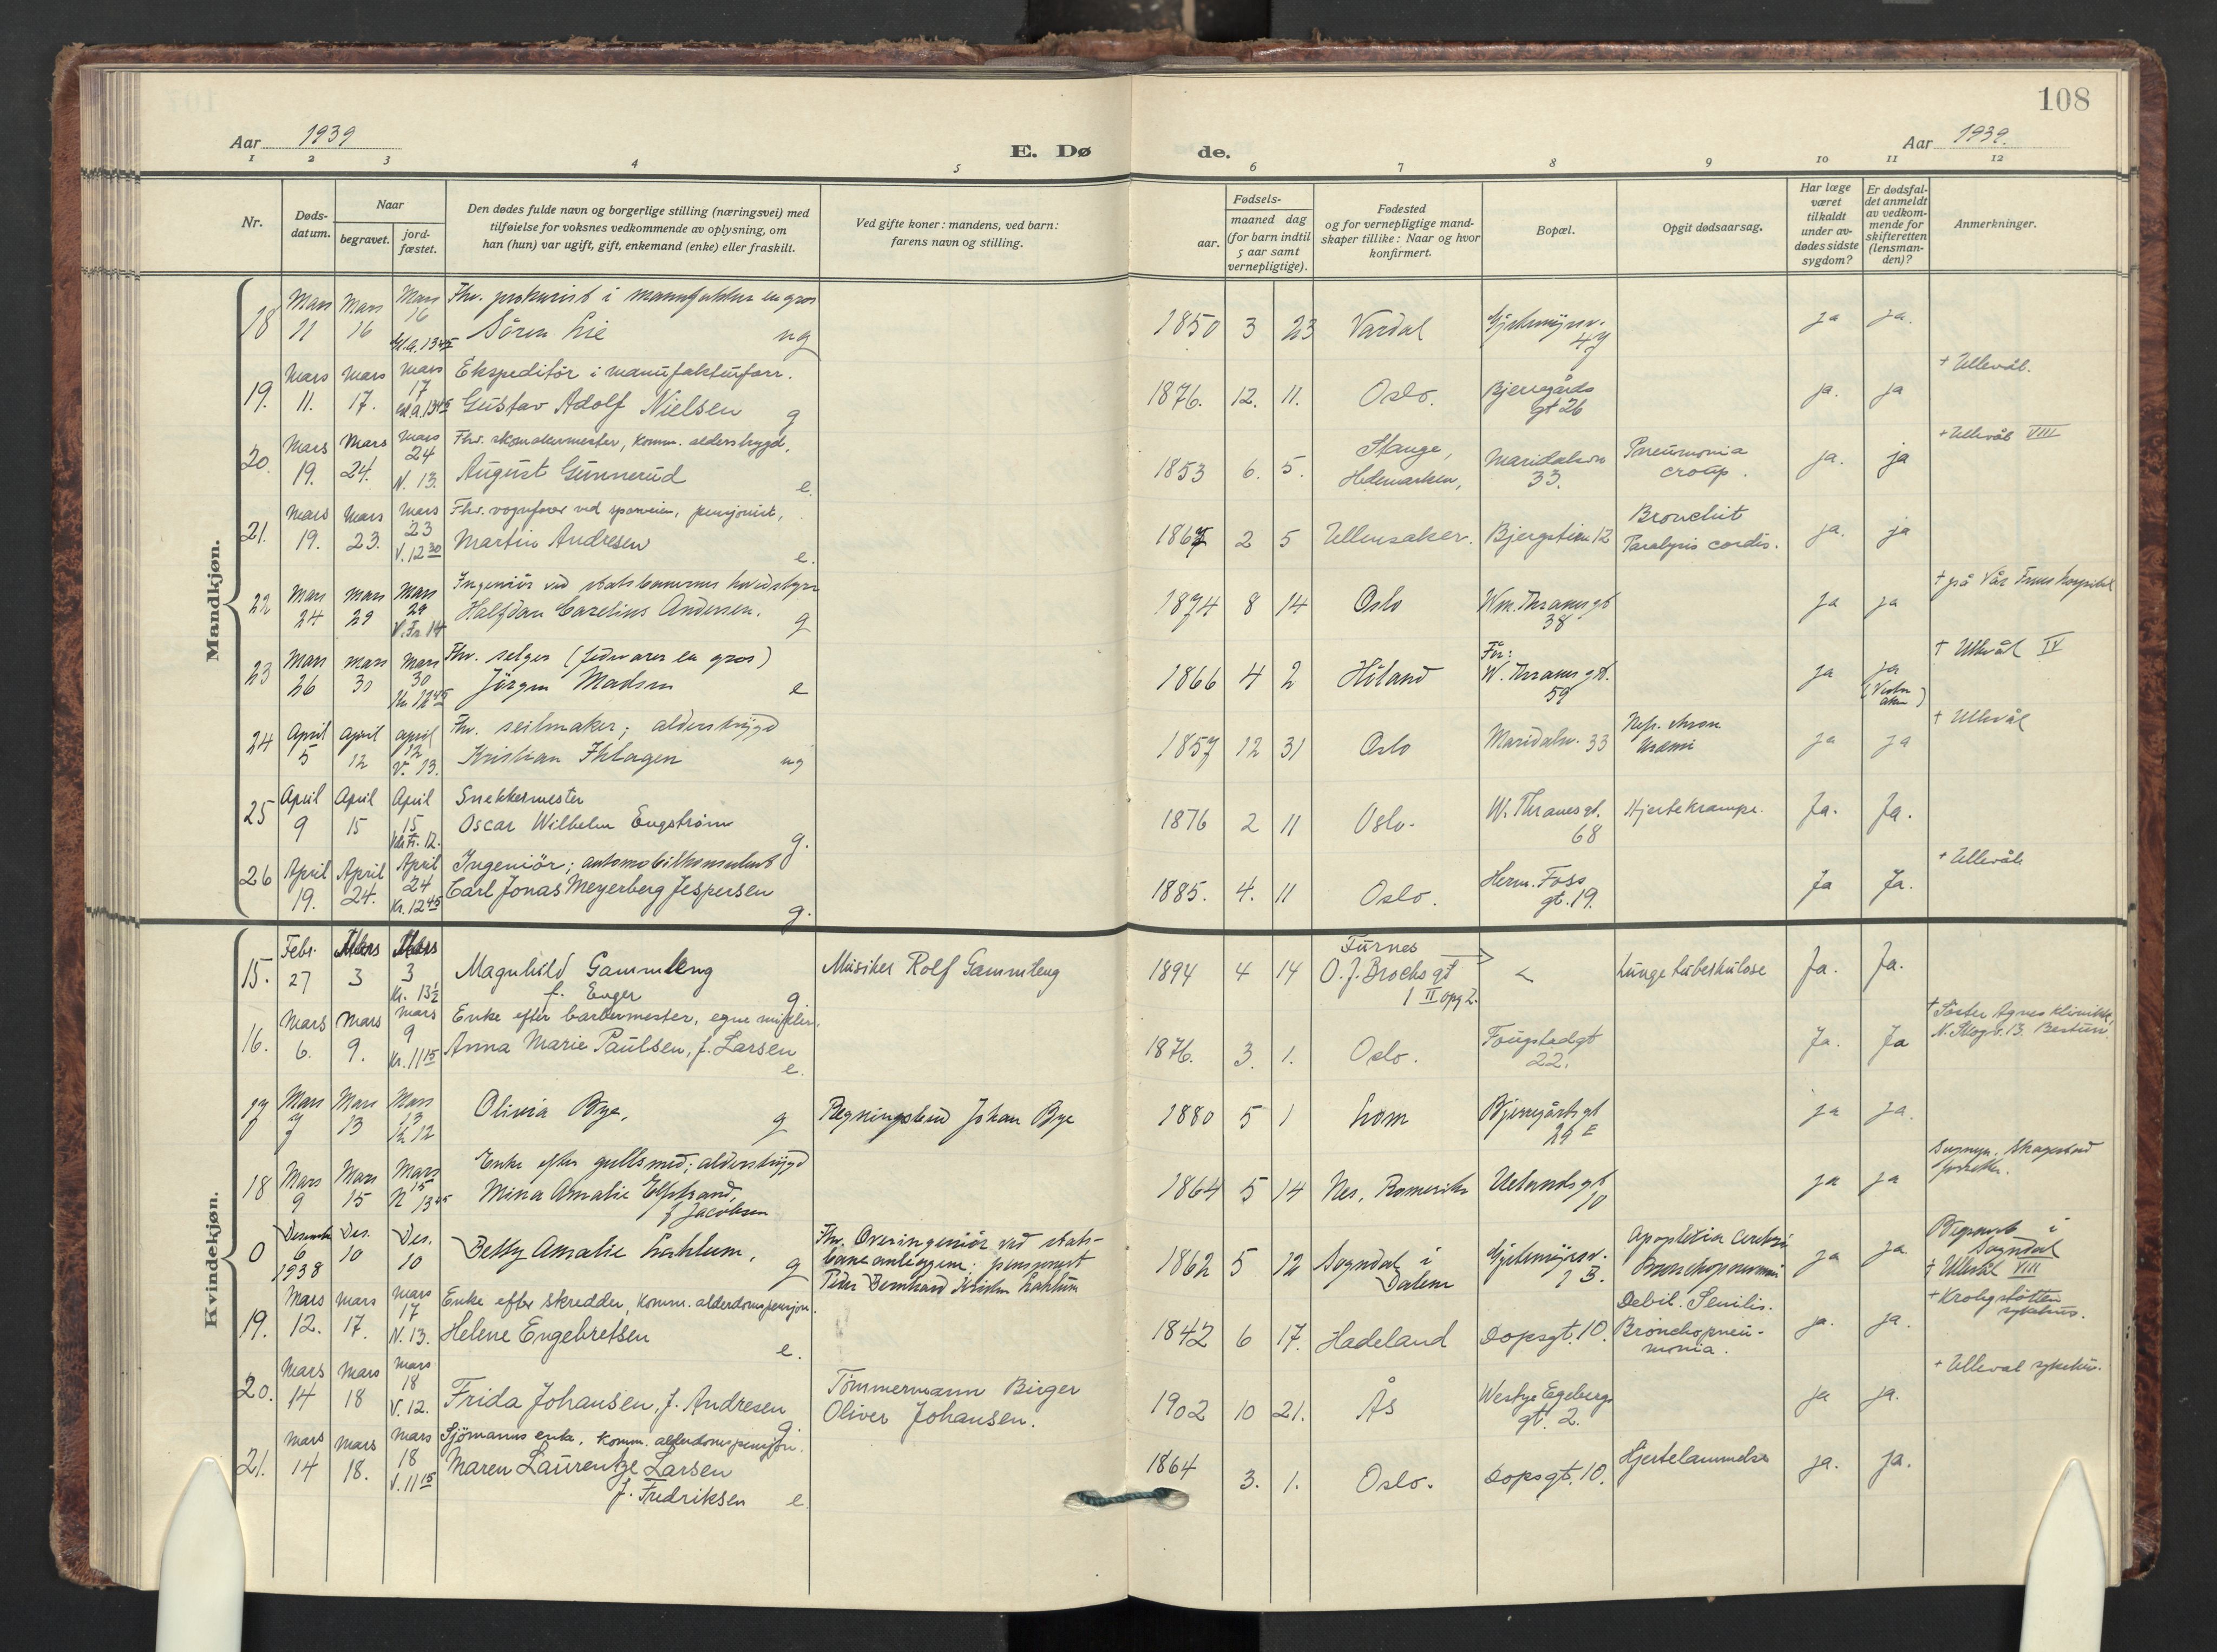 108
Aar 1939
E. Dø
de.
Aar 1939.
1 2 3 4 5 6 7 8 9 10 11 12
Nr.
Døds-
datum.
Naar
begravet.
jord-
fæstet.
Den dødes fulde navn og borgerlige stilling (næringsvei) med
tilføielse for voksnes vedkommende av oplysning, om
han (hun) var ugift, gift, enkemand (enke) eller fraskilt.
Ved gifte koner: mandens, ved barn:
farens navn og stilling.
Fødsels-
aar.
maaned dag
(for barn indtil
5 aar samt
vernepligtige).
Fødested
og for vernepligtige mand-
skaper tillike: Naar og hvor
konfirmert.
Bopæl.
Opgit dødsaarsag.
Har læge
været
tilkaldt
under av-
dødes sidste
sygdom?
Er dødsfal-
det anmeldt
av vedkom-
mende for
skifteretten
(lensman-
den)?
Anmerkninger.
Mandkjøn.
Mars Mars Mars Fhv. prokurist i manufaktur en gros
18 11 16 16 Sören Lie ug 1850 3 23 Vardal 47 ja ja.
Gl.a. 13 45
Mars Mars Mars Ekspeditör i manufakturforr. + Ullevål.
19. 11. 17. 17 Gustav Adolf Nielsen g 1876. 12. 11. Oslo. Bjerregårds ja. ja
Gl.a. 13 45 gt 26
Mars Mars Mars Fhv. skomakermester, komm. alderstrygd, + Ullevål VIII
20. 19. 24. 24 August Gunnerud e. 1853 6. 5. Stange, Maridalsvn Pneumonia ja. ja
N. 13. Hedemarken, 33. croup.
Mars Mars Mars Fhv. vognfører ved sporveien, pensjonist,
21. 19. 23. 23 Martin Andresen e. 2 5 Ullensaker. Bjergstien 12 Bronchit ja. ja
V. 12 30 Paralysis cordis.
Mars Mars Mars Ingeniör ved statsbanernes hovedstyre + på Vår Frues hospital
22 24 29 29 Halfdan Carelius Andersen. g 1874 8 14 Oslo W. Thranes gt ja ja
V. Fr. 14 38
Mars Mars Mars Fhv. selger (fedevarer en gros) Før: + Ullevål IV
23 26 30 30 Jörgen Madsen e 1866 4 2 Höland W. Thranes gt. ja ja
12 45 59
April April April Fhv. seilmaker; alderstrygd + Ullevål
24 5 12 12 Kristian Ihlagen ug 1857 12 31 Oslo Maridalsv. 33 Nefr. chron ja ja
V. 13. Uræmi
April April April Snekkermester
25 9 15 15 Oscar Wilhelm Engström g. 1876 2 11 Oslo. W. Thranes gt. Hjertekrampe. Ja. Ja.
V. Fr. 12. 68
April April April Ingeniör; automobilkonsulent + Ullevål
26 19. 24. 24 Carl Jonas Meyerberg Jespersen g. 1885. 4. 11 Oslo. Herm. Foss Ja Ja.
Kr. 12 45 gt. 19.
Kvindekjøn.
Febr. Mars Mars Furnes
15. 27 3 3 Magnhild Gammleng g. Musiker Rolf Gammleng 1894 4 14 O. J. Brochs gt Lungetuberkulose Ja. Ja.
Kr. 13½ f. Enger 1 II opg 2.
Mars Mars Mars Enke efter barbermester, egne midler. + Söster Agnes klinikk,
16. 6. 9. 9 Anna Marie Paulsen, f. Larsen e. 1876. 3. 1. Oslo. Fougstadgt Ja. Ja N. Skogv. 13. Bestum.
Kr. 11 15 22.
Mars Mars Mars
17 7 13 13 Olivia Bye, g Regningsbud Johan Bye 1880 5 1 Lom Bjerregårds gt ja ja.
Kr 12 29 E
Mars Mars Mars Enke efter gullsmed; alderstrygd
18 9 15 15 Mina Amalie Elfstrand, 1864 5 14 Nes, Romerike Uelands gt ja ja
N 13 45 f Jacobsen 10
Desember Des. Des. Fhv. Overingeniör ved stats- Apoplexia cerebri Begravet i
0 6 10 10 Betty Amalie Lahlum, g baneanleggene; pensjonert 1862 5 12 Sogndal i Bronchopneumoni ja ja Sogndal
1938 Peder Bernhard Lahlum Dalene 1 B. + Ullevål VIII
Mars Mars Mars Enke efter skredder, komm. alderdomspensjon. Debil. Senilis. + Krohgstötten
19. 12. 17. 17 Helene Engebretsen e. 1842 6 17. Hadeland Dopsgt. 10. Bronchopneu- ja. ja. sykehus.
N. 13. monia.
Mars Mars Mars + Ulleval sykehus.
20. 14 18 18 Frida Johansen, f. Andresen g. Tömmermann Birger 1902 10 21. Ås Westye Egeberg ja ja.
V. 12. Oliver Johansen. gt. 2.
Mars Mars Mars Sjömanns enke, komm. alderdomspensjon.
21. 14 18. 18 Maren Laurentze Larsen 1864 3. 1. Oslo. Dopsgt. 10. Hjertelammelse ja. ja.
V. 11 15 f. Fredriksen e